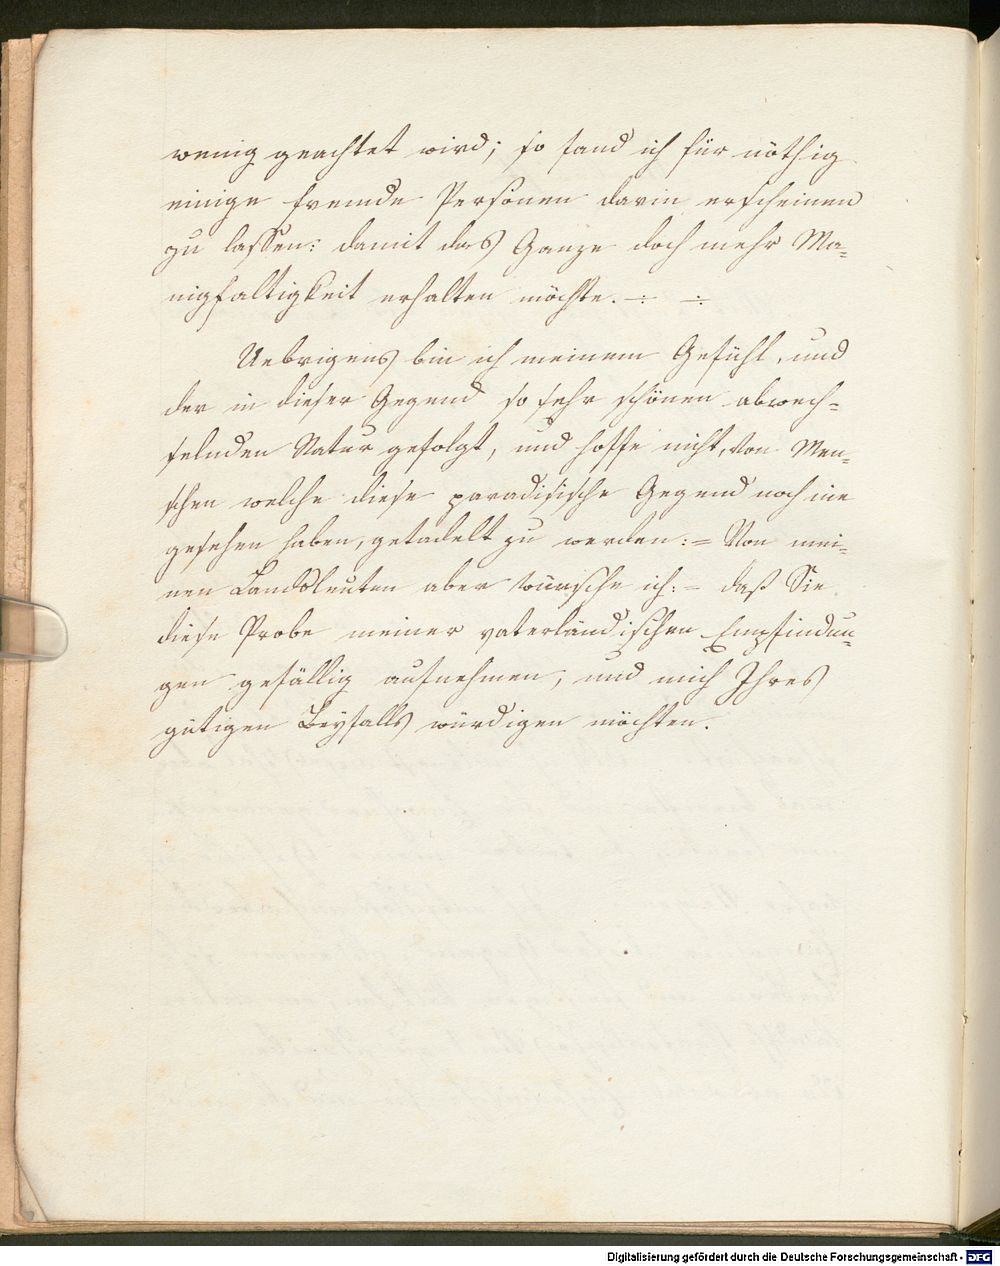 wenig geachtet wird; so fand ich für nöthig
einige fremde Personen darin erscheinen
zu lassen: damit das Ganze doch mehr Ma=
nigfaltigkeit erhalten möchte. ÷ ÷
Uebrigens bin ich meinem Gefühl, und
der in dieser Gegend so sehr schönen abwech=
selnden Natur gefolgt, und hoffe nicht, von Men=
schen welche diese paradisische Gegend noch nie
gesehen haben, getadelt zu werden: = Von mei=
nen Landsleuten aber wünsche ich: = daß Sie
diese Probe meiner vaterländischen Empfindun=
gen gefällig aufnehmen, und mich Ihres
gütigen Beyfalls würdigen möchten.
Digitalisierung gefördert durch die Deutsche Forschungsgemeinschaft - DFG